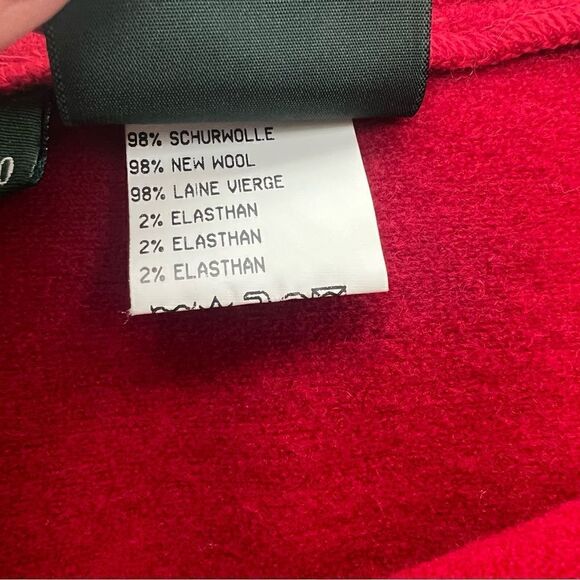 98% SCHURWOLLE
98% NEW WOOL
98% LAINE VIERGE
2% ELASTHAN
2% ELASTHAN
2% ELASTHAN